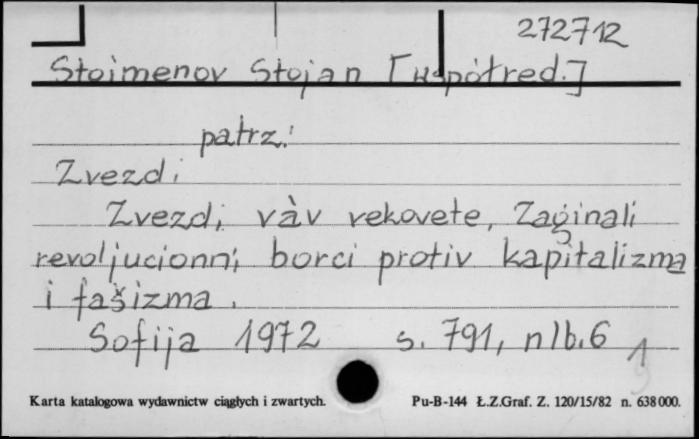 272712
Stojmenov Stojan [współred.]
patrz:
Zvezdi
Zvezdi vàv vekovete, Zaginali
revoljucionni borci protiv kapitalizma
i fašizma.
Sofija 1972 s. 791, nlb. 6
Karta katalogowa wydawnictw ciągłych i zwartych. Pu-B-144 Ł.Z.Graf. Z. 120/15/82 n. 638000.